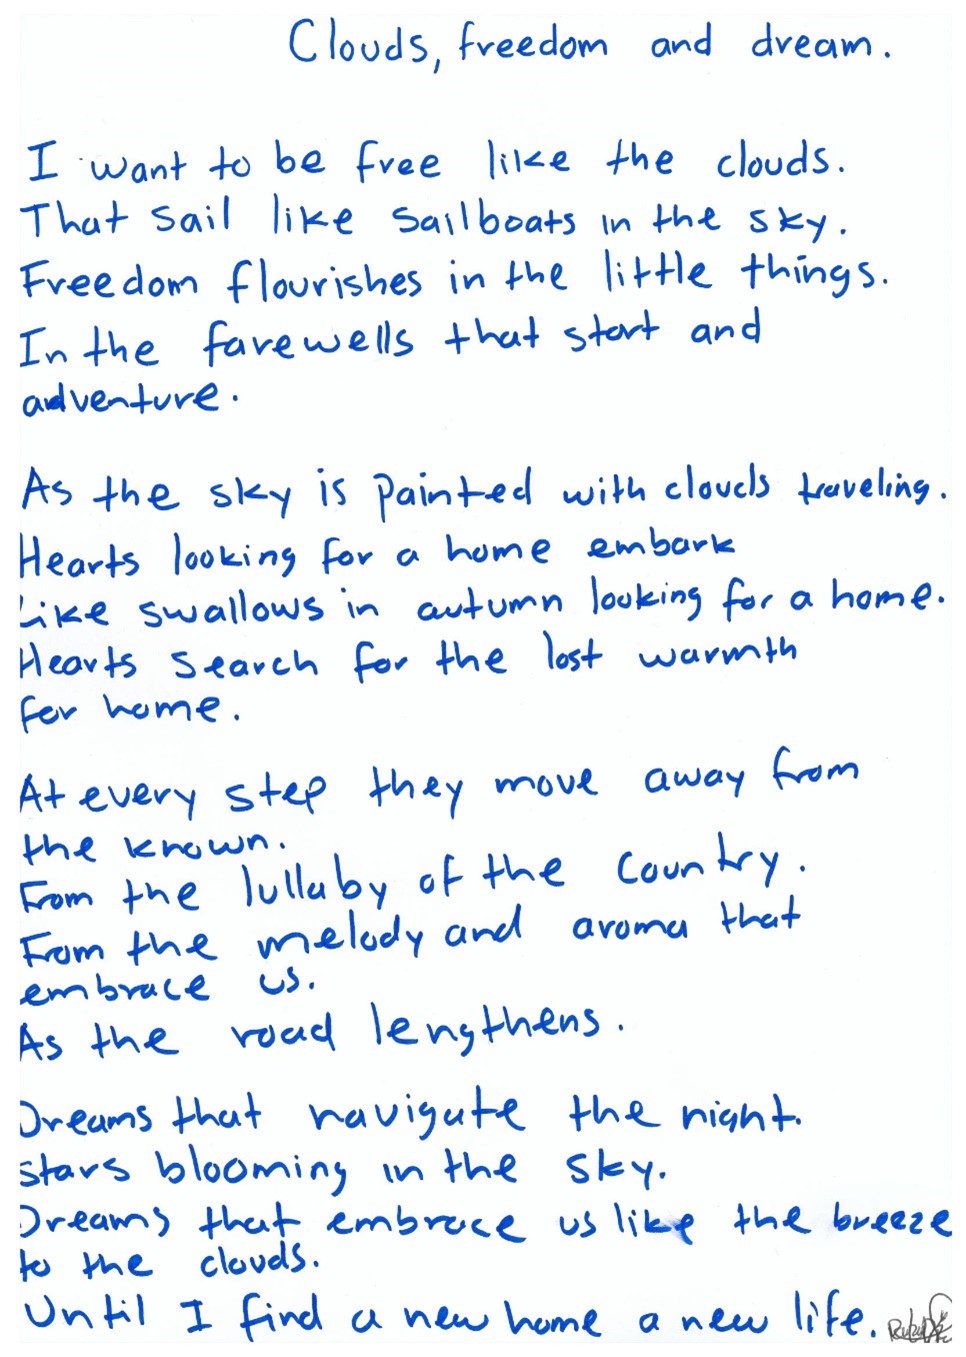 Clouds, freedom and dream.
I want to be free like the clouds.
That sail like sailboats in the sky.
Freedom flourishes in the little things.
In the farewells that start and
adventure.
As the sky is painted with clouds traveling.
Hearts looking for a home embark
Like swallows in autumn looking for a home.
Hearts search for the lost warmth
for home.
At every step they move away from
the known.
From the lullaby of the country.
From the melody and aroma that
embrace us.
As the road lengthens.
Dreams that navigate the night.
stars blooming in the sky.
Dreams that embrace us like the breeze
to the clouds.
Until I find a new home a new life.